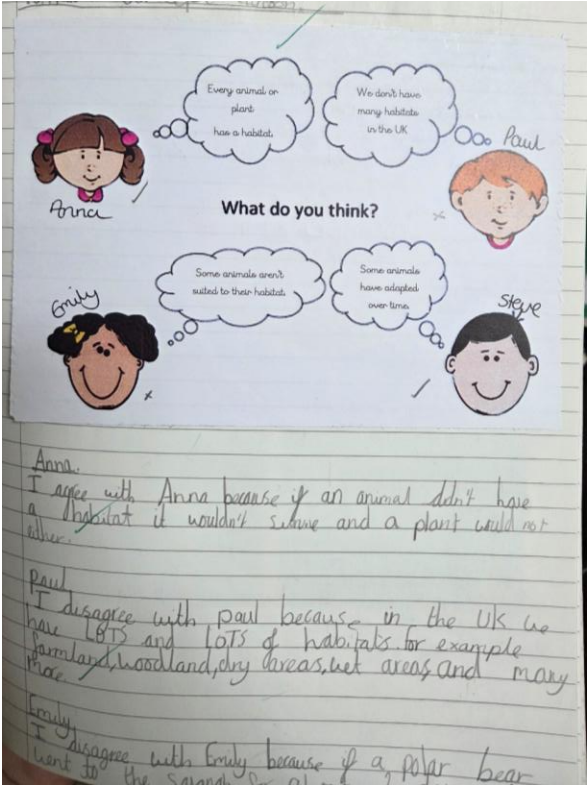 Every animal or
plant
has a habitat.
We don't have
many habitats
in the UK
Paul
Anna
What do you think?
Some animals aren't
suited to their habitat.
Some animals
have adapted
over time.
Emily
Steve
Anna.
I agree with Anna because if an animal ddn't have
a habitat it wouldn't and a plant would not
either.
Paul
I disagree with paul because in the UK we
have LOTS and LOTS of habitats for example
farmland, woodland, dry areas, wet areas, and many
more
Emily
I disagree with Emily because if a polar bear
went to the